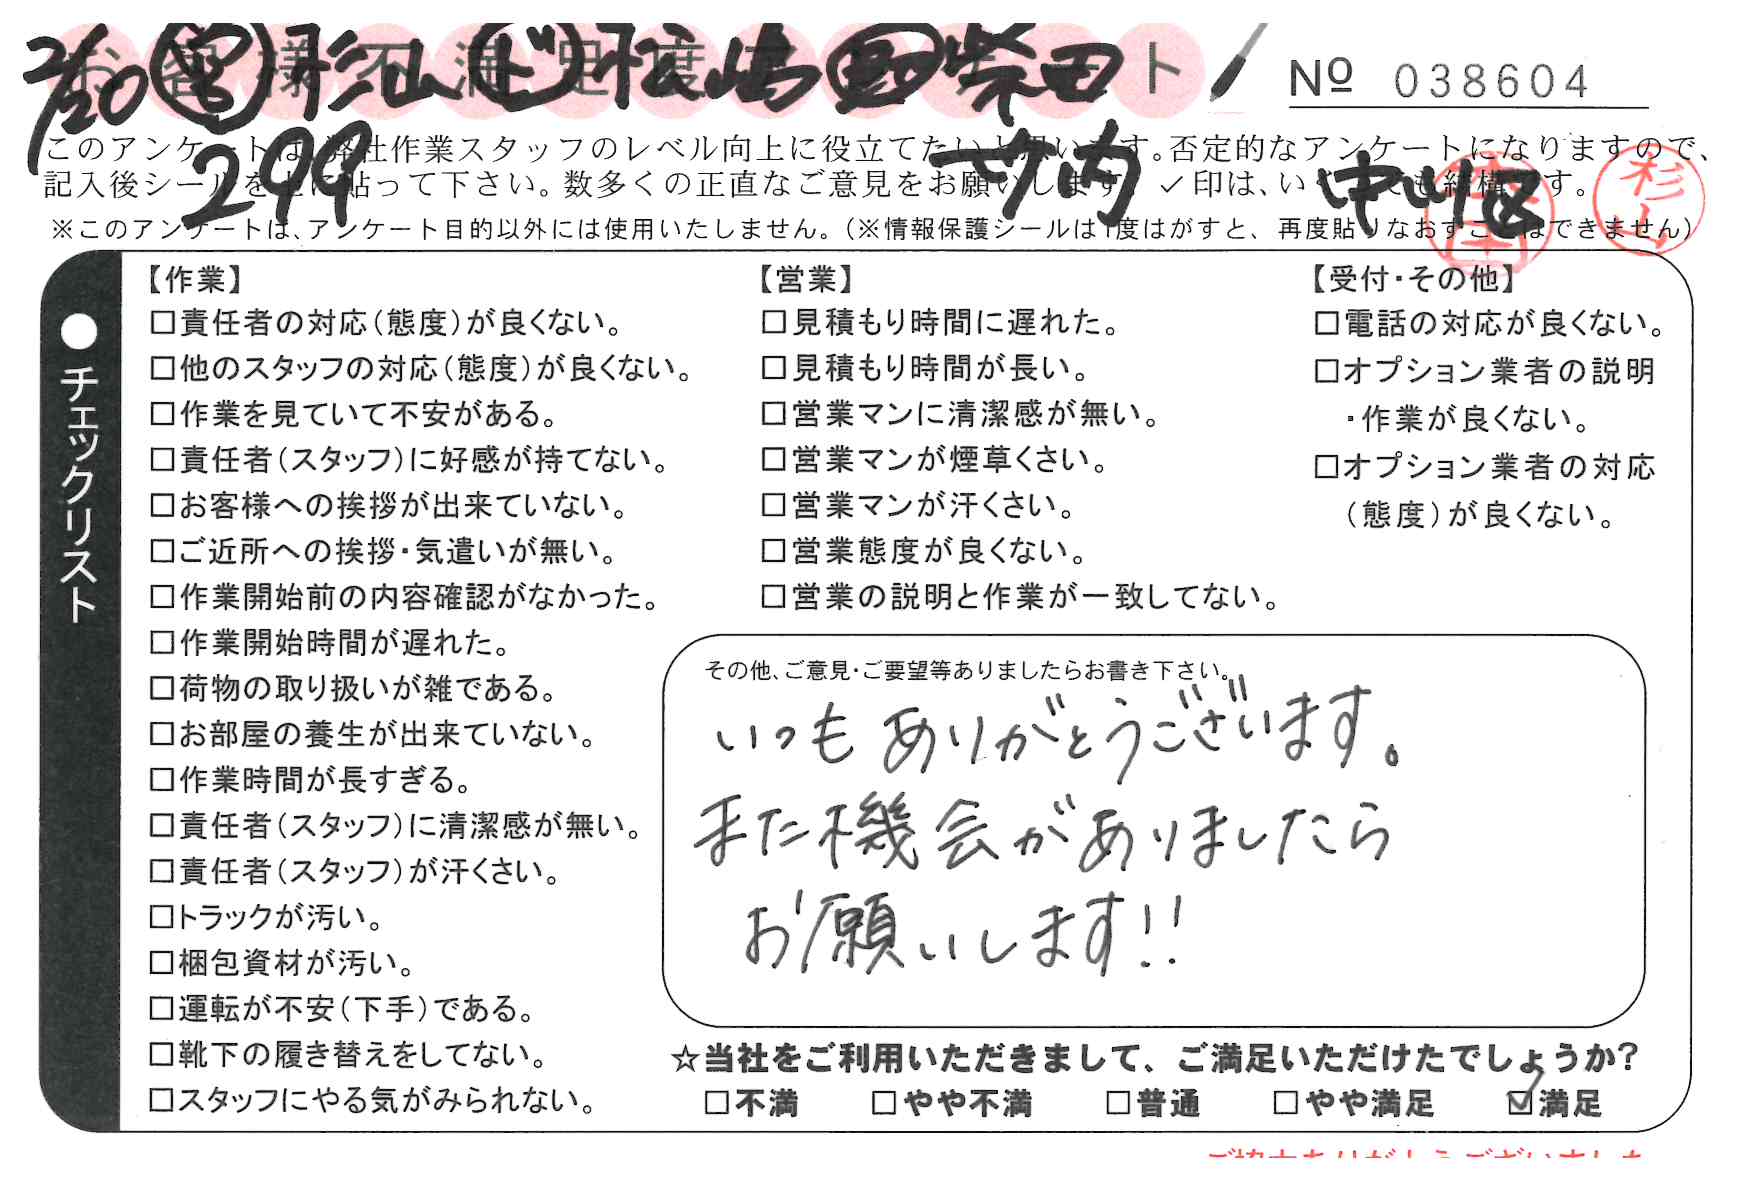 お客様不満足度アンケート
2/20 営 杉山 ド 松嶋 助 柴田
№ 038604
299
下内
中川区
このアンケートは、弊社作業スタッフのレベル向上に役立てたいと思います。否定的なアンケートになりますので、
記入後シールを上に貼って下さい。数多くの正直なご意見をお願いします。✓印は、いくつでも結構です。
※このアンケートは、アンケート目的以外には使用いたしません。(※情報保護シールは1度はがすと、再度貼りなおすことはできません)
杉山
●チェックリスト
【作業】
□責任者の対応(態度)が良くない。
□他のスタッフの対応(態度)が良くない。
□作業を見ていて不安がある。
□責任者(スタッフ)に好感が持てない。
□お客様への挨拶が出来ていない。
□ご近所への挨拶・気遣いが無い。
□作業開始前の内容確認がなかった。
□作業開始時間が遅れた。
□荷物の取り扱いが雑である。
□お部屋の養生が出来ていない。
□作業時間が長すぎる。
□責任者(スタッフ)に清潔感が無い。
□責任者(スタッフ)が汗くさい。
□トラックが汚い。
□梱包資材が汚い。
□運転が不安(下手)である。
□靴下の履き替えをしてない。
□スタッフにやる気がみられない。
【営業】
□見積もり時間に遅れた。
□見積もり時間が長い。
□営業マンに清潔感が無い。
□営業マンが煙草くさい。
□営業マンが汗くさい。
□営業態度が良くない。
□営業の説明と作業が一致してない。
【受付・その他】
□電話の対応が良くない。
□オプション業者の説明
・作業が良くない。
□オプション業者の対応
(態度)が良くない。
その他、ご意見・ご要望等ありましたらお書き下さい。
いつもありがとうございます。
また機会がありましたら
お願いします!!
☆当社をご利用いただきまして、ご満足いただけたでしょうか?
□不満 □やや不満 □普通 □やや満足 ☑満足
ご協力ありがとうございました